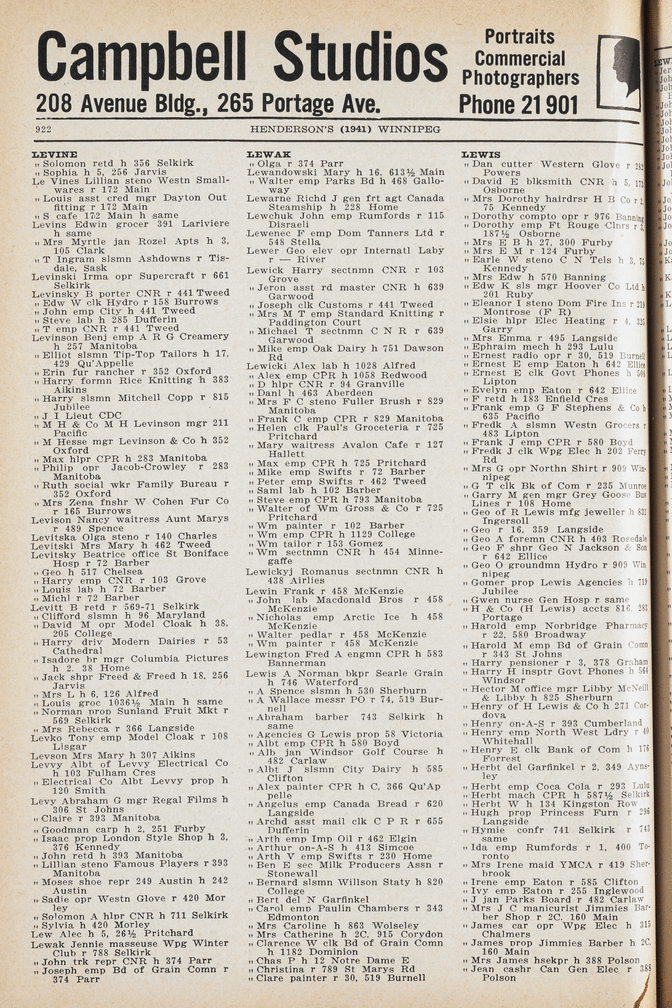 Campbell Studios
Portraits
Commercial
Photographers
208 Avenue Bldg., 265 Portage Ave.
Phone 21 901
922
HENDERSON'S (1941) WINNIPEG
LEVINE
„ Solomon retd h 356 Selkirk
„ Sophia h 5, 256 Jarvis
Le Vines Lillian steno Westn Small-
wares r 172 Main
„ Louis asst cred mgr Dayton Out
fitting r 172 Main
„ S cafe 172 Main h same
Levins Edwin grocer 391 Lariviere
h same
„ Mrs Myrtle jan Rozel Apts h 3,
105 Clark
„ T Ingram slsmn Ashdowns r Tis-
dale, Sask
Levinski Irma opr Supercraft r 661
Selkirk
Levinsky B porter CNR r 441 Tweed
„ Edw W clk Hydro r 158 Burrows
„ John emp City h 441 Tweed
„ Steve lab h 285 Dufferin
„ T emp CNR r 441 Tweed
Levinson Benj emp A R G Creamery
h 257 Manitoba
„ Elliot slsmn Tip-Top Tailors h 17,
429 Qu'Appelle
„ Erin fur rancher r 352 Oxford
„ Harry formn Rice Knitting h 383
Aikins
„ Harry slsmn Mitchell Copp r 815
Jubilee
„ J I Lieut CDC
„ M H & Co M H Levinson mgr 211
Pacific
„ M Hesse mgr Levinson & Co h 352
Oxford
„ Max hlpr CPR h 283 Manitoba
„ Philip opr Jacob-Crowley r 283
Manitoba
„ Ruth social wkr Family Bureau r
352 Oxford
„ Mrs Zena fnshr W Cohen Fur Co
r 165 Burrows
Levison Nancy waitress Aunt Marys
r 489 Spence
Levitska Olga steno r 140 Charles
Levitski Mrs Mary h 462 Tweed
Levitsky Beatrice office St Boniface
Hosp r 72 Barber
„ Geo h 517 Chelsea
„ Harry emp CNR r 103 Grove
„ Louis lab h 72 Barber
„ Michl r 72 Barber
Levitt B retd r 569-71 Selkirk
„ Clifford slsmn h 96 Maryland
„ David M opr Model Cloak h 38,
205 College
„ Harry driv Modern Dairies r 53
Cathedral
„ Isadore br mgr Columbia Pictures
h 2, 38 Home
„ Jack shpr Freed & Freed h 18, 256
Jarvis
„ Mrs L h 6, 126 Alfred
„ Louis groc 1036½ Main h same
„ Norman prop Sunland Fruit Mkt r
569 Selkirk
„ Mrs Rebecca r 366 Langside
Levko Tony emp Model Cloak r 108
Lisgar
Levson Mrs Mary h 307 Aikins
Levvy Albt of Levvy Electrical Co
h 103 Fulham Cres
„ Electrical Co Albt Levvy prop h
120 Smith
Levy Abraham G mgr Regal Films h
306 St Johns
„ Claire r 393 Manitoba
„ Goodman carp h 2, 251 Furby
„ Isaac prop London Style Shop h 3,
376 Kennedy
„ John retd h 393 Manitoba
„ Lillian steno Famous Players r 393
Manitoba
„ Moses shoe repr 249 Austin h 242
Austin
„ Sadie opr Westn Glove r 420 Mor
ley
„ Solomon A hlpr CNR h 711 Selkirk
„ Sylvia h 420 Morley
Lew Alec h 5, 26½ Pritchard
Lewak Jennie masseuse Wpg Winter
Club r 788 Selkirk
„ John trk repr CNR h 374 Parr
„ Joseph emp Bd of Grain Comn r
374 Parr
LEWAK
„ Olga r 374 Parr
Lewandowski Mary h 16, 613½ Main
„ Walter emp Parks Bd h 468 Gallo-
way
Lewarne Richd J gen frt agt Canada
Steamship h 228 Home
Lewchuk John emp Rumfords r 115
Disraeli
Lewenec F emp Dom Tanners Ltd r
548 Stella
Lewer Geo elev opr Internatl Laby
r — River
Lewick Harry sectnmn CNR r 103
Grove
„ Jeron asst rd master CNR h 639
Garwood
„ Joseph clk Customs r 441 Tweed
„ Mrs M T emp Standard Knitting r
Paddington Court
„ Michael T sectnmn C N R r 639
Garwood
„ Mike emp Oak Dairy h 751 Dawson
Rd
Lewicki Alex lab h 1028 Alfred
„ Alex emp CPR h 1058 Redwood
„ D hlpr CNR r 94 Granville
„ Danl h 463 Aberdeen
„ Mrs F C steno Fuller Brush r 829
Manitoba
„ Frank C emp CPR r 829 Manitoba
„ Helen clk Paul's Groceteria r 725
Pritchard
„ Mary waitress Avalon Cafe r 127
Hallett
„ Max emp CPR h 725 Pritchard
„ Mike emp Swifts r 72 Barber
„ Peter emp Swifts r 462 Tweed
„ Saml lab h 102 Barber
„ Steve emp CPR h 793 Manitoba
„ Walter of Wm Gross & Co r 725
Pritchard
„ Wm painter r 102 Barber
„ Wm emp CPR h 1129 College
„ Wm tailor r 153 Gomez
„ Wm sectnmn CNR r 454 Minne-
gaffe
Lewickyj Romanus sectnmn CNR h
438 Airlies
Lewin Frank r 458 McKenzie
„ John lab Macdonald Bros r 458
McKenzie
„ Nicholas emp Arctic Ice h 458
McKenzie
„ Walter pedlar r 458 McKenzie
„ Wm painter r 458 McKenzie
Lewington Fred A engmn CPR h 583
Bannerman
Lewis A Norman bkpr Searle Grain
h 746 Waterford
„ A Spence slsmn h 530 Sherburn
„ A Wallace messr PO r 74, 519 Bur-
nell
„ Abraham barber 743 Selkirk h
same
„ Agencies G Lewis prop 58 Victoria
„ Albt emp CPR h 580 Boyd
„ Alb jan Windsor Golf Course h
482 Carlaw
„ Albt J slsmn City Dairy h 585
Clifton
„ Alex painter CPR h C, 366 Qu'Ap
pelle
„ Angelus emp Canada Bread r 620
Langside
„ Archd asst mail clk C P R r 655
Dufferin
„ Arth emp Imp Oil r 462 Elgin
„ Arthur on-A-S h 413 Simcoe
„ Arth V emp Swifts r 230 Home
„ Ben E sec Milk Producers Assn r
Stonewall
„ Bernard slsmn Willson Staty h 820
College
„ Bert del N Garfinkel
„ Carol emp Paulin Chambers r 343
Edmonton
„ Mrs Caroline h 863 Wolseley
„ Mrs Catherine h 2C, 915 Corydon
„ Clarence W clk Bd of Grain Comn
h 1182 Dominion
„ Chas P h 12 Notre Dame E
„ Christina r 789 St Marys Rd
„ Clare painter r 30, 519 Burnell
LEWIS
„ Dan cutter Western Glove r
Powers
„ David E blksmith CNR h 5,
Osborne
„ Mrs Dorothy hairdrsr H B Co r
75 Kennedy
„ Dorothy compto opr r 976 Banning
„ Dorothy emp Ft Rouge Clnrs r
187½ Osborne
„ Mrs E B h 27, 300 Furby
„ Mrs E M r 124 Furby
„ Earle W steno C N Tels h 3, 75
Kennedy
„ Mrs Edw h 570 Banning
„ Edw K sls mgr Hoover Co Ltd h
201 Ruby
„ Eleanor I steno Dom Fire Ins r
Montrose (F R)
„ Elsie hlpr Elec Heating r 4,
Garry
„ Mrs Emma r 495 Langside
„ Ephraim mech h 293 Lulu
„ Ernest radio opr r 30, 519 Burnell
„ Ernest E emp Eaton h 642 Ellice
„ Ernest E clk Govt Phones h
Lipton
„ Evelyn emp Eaton r 642 Ellice
„ F retd h 183 Enfield Cres
„ Frank emp G F Stephens & Co h
635 Pacific
„ Fredk A slsmn Westn Grocers r
483 Lipton
„ Frank J emp CPR r 580 Boyd
„ Fredk J clk Wpg Elec h 202 Ferry
Rd
„ Mrs G opr Northn Shirt r 909 Win-
nipeg
„ G T clk Bk of Com r 235 Munroe
„ Garry M gen mgr Grey Goose Bus
Lines r 108 Home
„ Geo of R Lewis mfg jeweller h
Ingersoll
„ Geo r 16, 359 Langside
„ Geo A foremn CNR h 403 Rosedale
„ Geo F shpr Geo N Jackson & Son
r 642 Ellice
„ Geo O groundmn Hydro r 909 Win
nipeg
„ Gomer prop Lewis Agencies h 719
Jubilee
„ Gwen nurse Gen Hosp r same
„ H & Co (H Lewis) accts 816, 283
Portage
„ Harold emp Norbridge Pharmacy
r 22, 580 Broadway
„ Harold M emp Bd of Grain Comn
r 343 St Johns
„ Harry pensioner r 3, 378 Graham
„ Harry H insptr Govt Phones h 544
Windsor
„ Hector M office mgr Libby McNeill
& Libby h 825 Sherburn
„ Henry of H Lewis & Co h 271 Cor-
dova
„ Henry on-A-S r 393 Cumberland
„ Henry emp North West Ldry r 40
Whitehall
„ Henry E clk Bank of Com h 176
Forrest
„ Herbt del Garfinkel r 2, 349 Ayns-
ley
„ Herbt emp Coca Cola r 293 Lulu
„ Herbt mach CPR h 587½ Selkirk
„ Herbt W h 134 Kingston Row
„ Hugh prop Princess Furn r 296
Langside
„ Hymie confr 741 Selkirk r 743
same
„ Ida emp Rumfords r 1, 400 To-
ronto
„ Mrs Irene maid YMCA r 419 Sher-
brook
„ Irene emp Eaton r 585 Clifton
„ Ivy emp Eaton r 255 Inglewood
„ J jan Parks Board r 482 Carlaw
„ Mrs J C manicurist Jimmies Bar-
ber Shop r 2C, 160 Main
„ James car opr Wpg Elec h 315
Chalmers
„ James prop Jimmies Barber h 2C,
160 Main
„ Mrs James hsekpr h 388 Polson
„ Jean cashr Can Gen Elec r 388
Polson